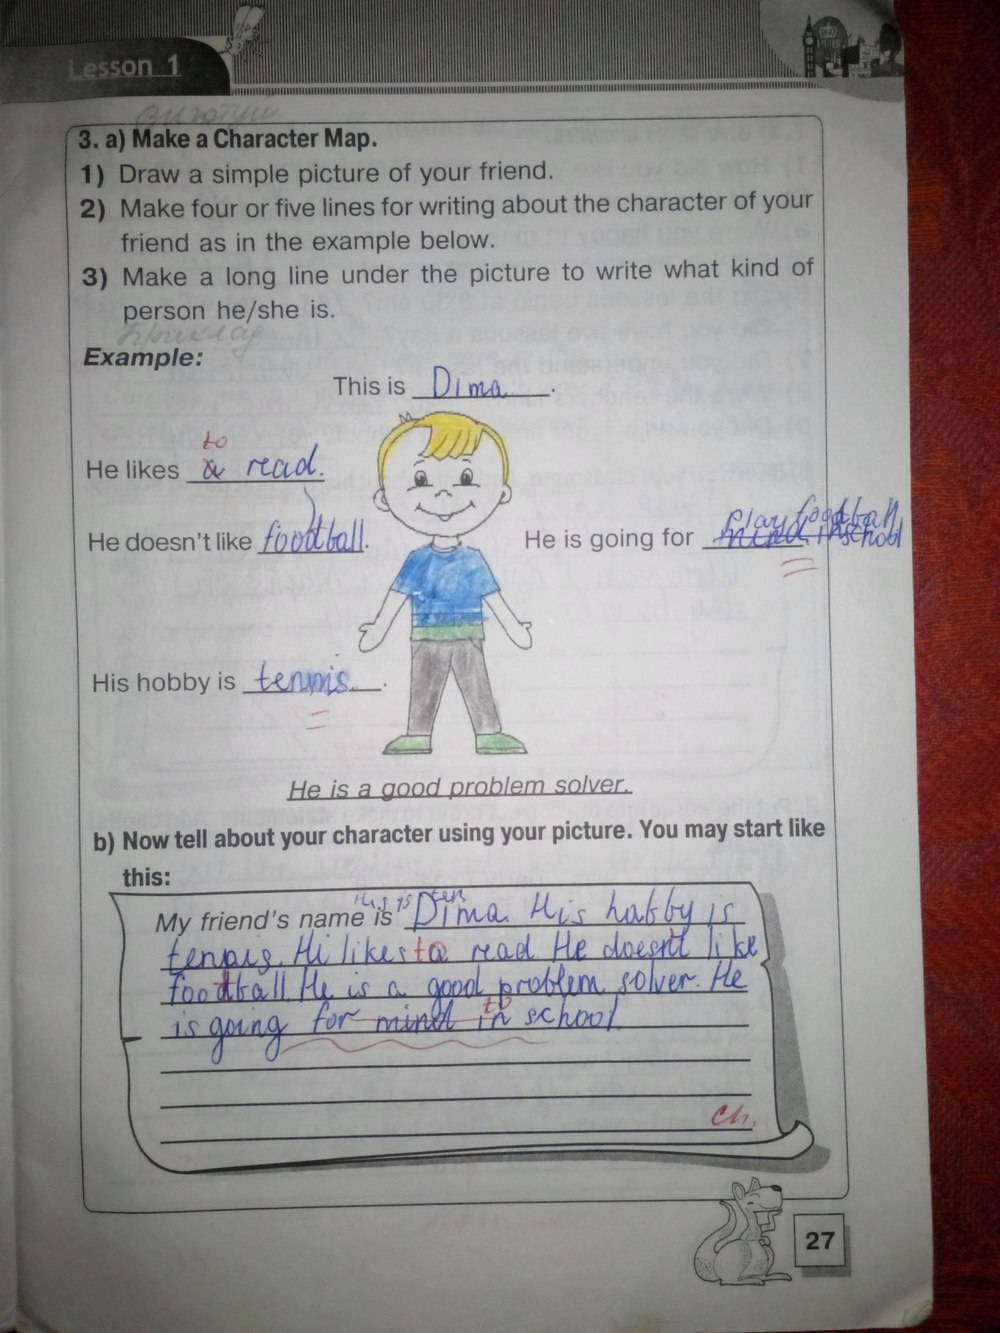 Lesson 1
3. a) Make a Character Map.
1) Draw a simple picture of your friend.
2) Make four or five lines for writing about the character of your
friend as in the example below.
3) Make a long line under the picture to write what kind of
person he/she is.
Приклад
Example:
This is Dima.
to
He likes a read.
play football
He doesn't like football.
He is going for mind in school
His hobby is tennis.
He is a good problem solver.
b) Now tell about your character using your picture. You may start like
this:
His is ten
My friend's name is Dima. His habby is
tennis. Hi likes to read. He doesn't like
football. He is a good problem solver. He
to
is going for mind in school
Ch.
27